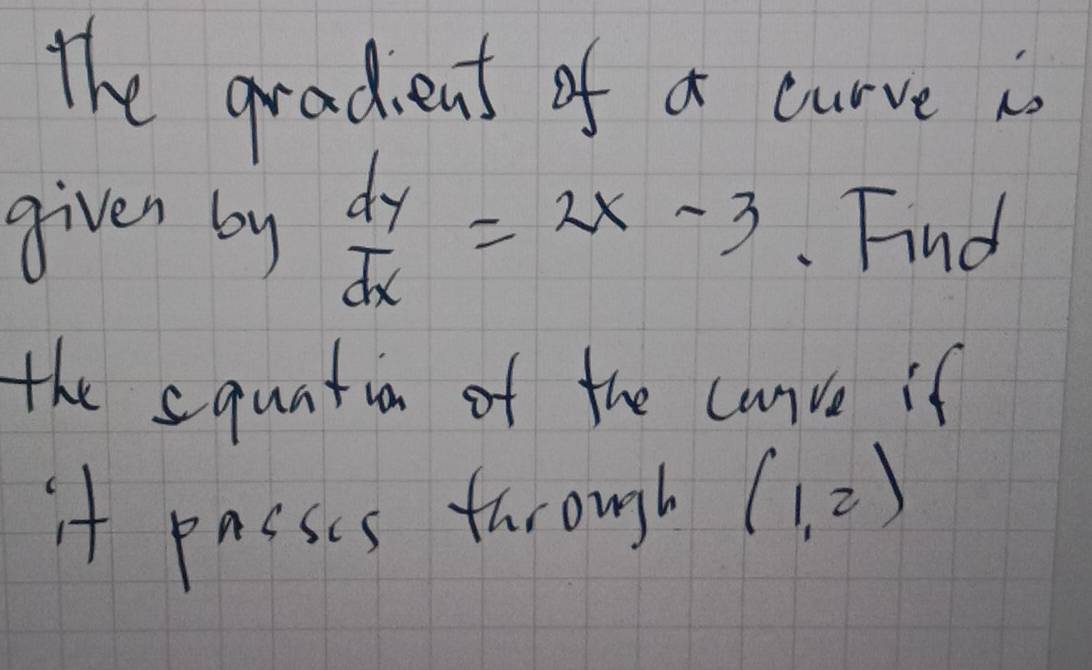 The gradient of a curve is
given by dy/dx = 2x - 3. Find
the equation of the curve if
it passes through (1,2)